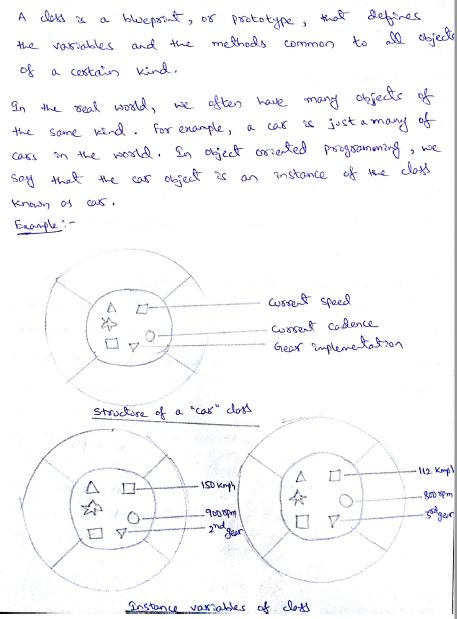 A class is a blueprint, or prototype, that defines
the variables and the methods common to all objects
of a certain kind.
In the real world, we often have many objects of
the same kind. For example, a car is just a many of
cars in the world. In object oriented programming, we
say that the car object is an instance of the class
known as car.
Example:-
current speed
current cadence
Gear implementation
structure of a "car" class
150 kmph
900 rpm
2nd gear
112 kmph
800 rpm
3rd gear
Instance variables of class